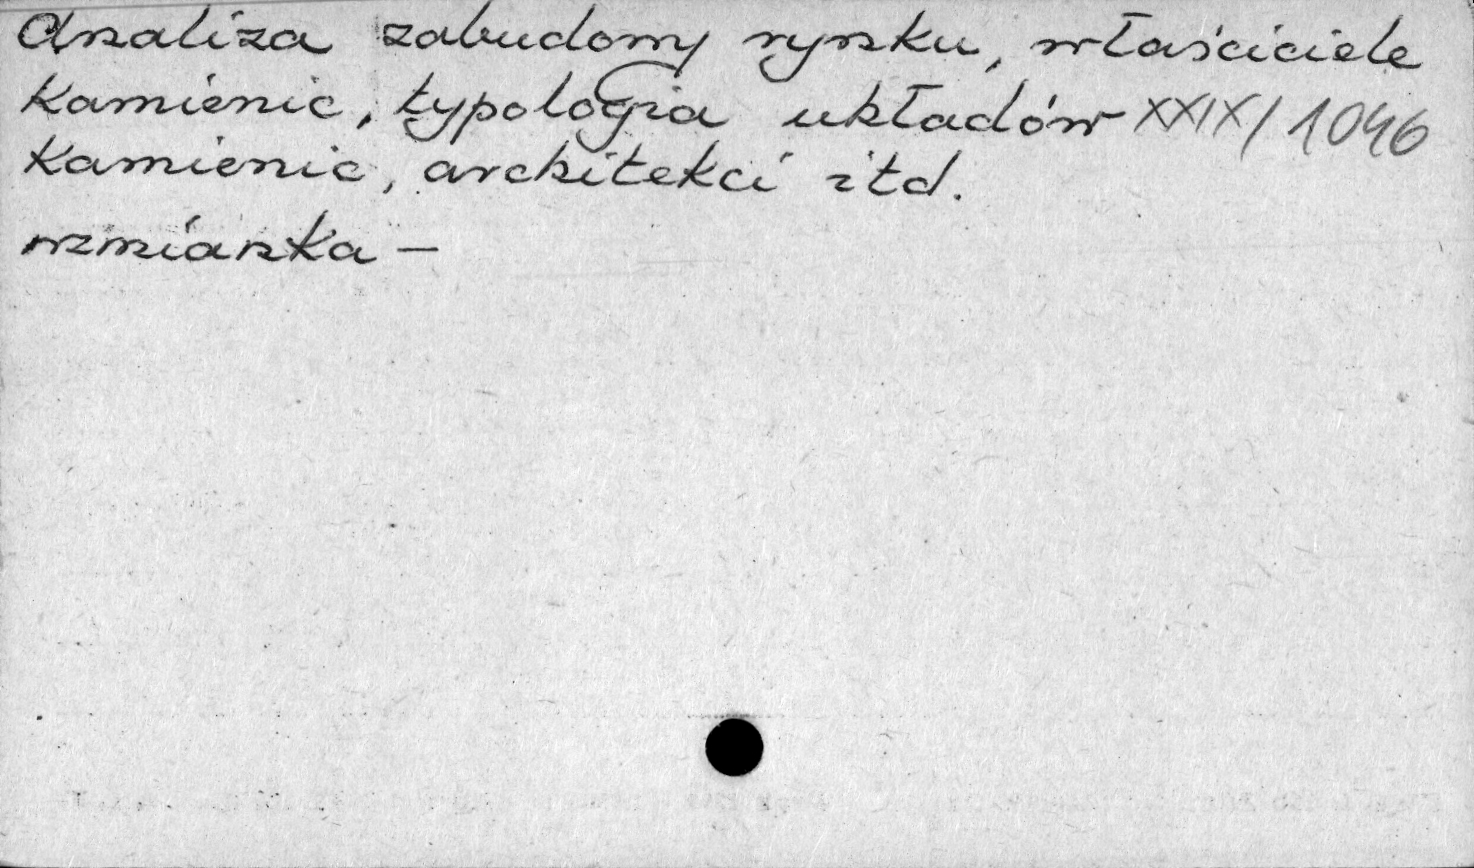 Analiza zabudowy rynku, właściciele
kamienic, typologia układów XXIX/1046
kamienic, architekci itd.
wzmianka —